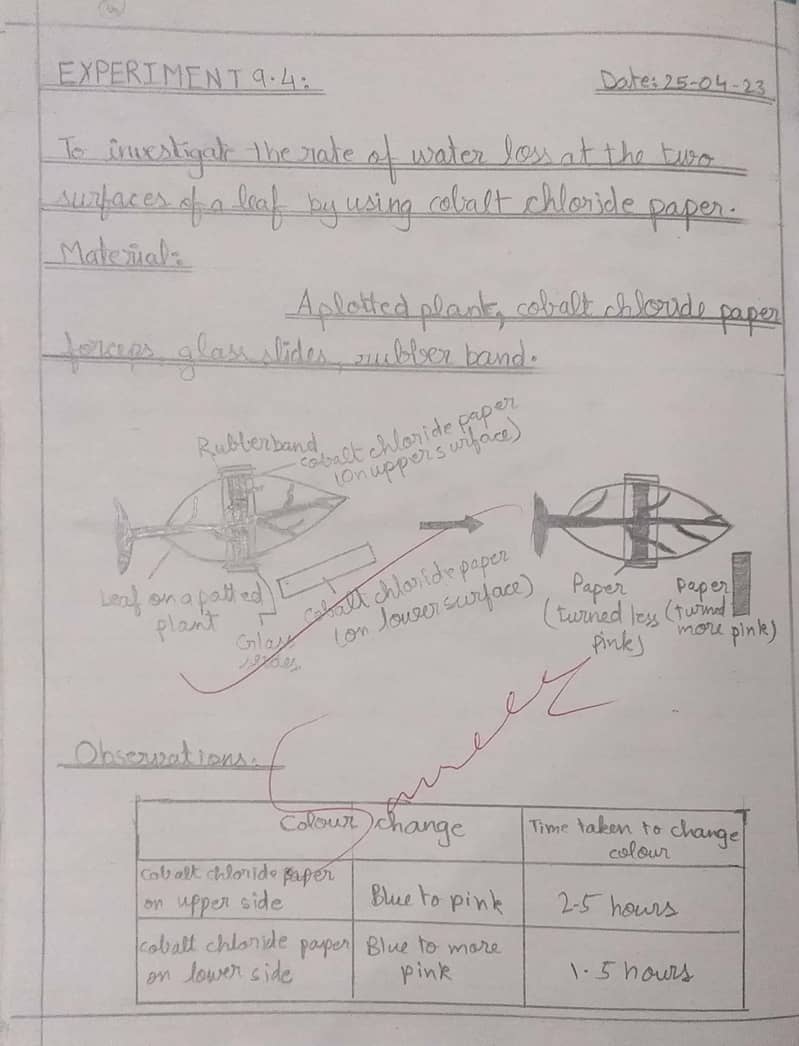 EXPERIMENT 9.4:
Date: 25-04-23
To investigate the rate of water loss at the two
surfaces of a leaf by using cobalt chloride paper.
Material:
A plotted plant, cobalt chloride paper
forceps, glass slides, rubber band.
Rubberband
cobalt chloride paper
(on upper surface)
Leaf on a potted
plant
Glass
cobalt chloride paper
(on lower surface)
Paper
(turned less
pink)
paper
(turned
more pink)
Observations:
Colour change
Time taken to change
colour
cobalt chloride paper
on upper side
Blue to pink
2-5 hours
cobalt chloride paper
on lower side
Blue to more
pink
1.5 hours